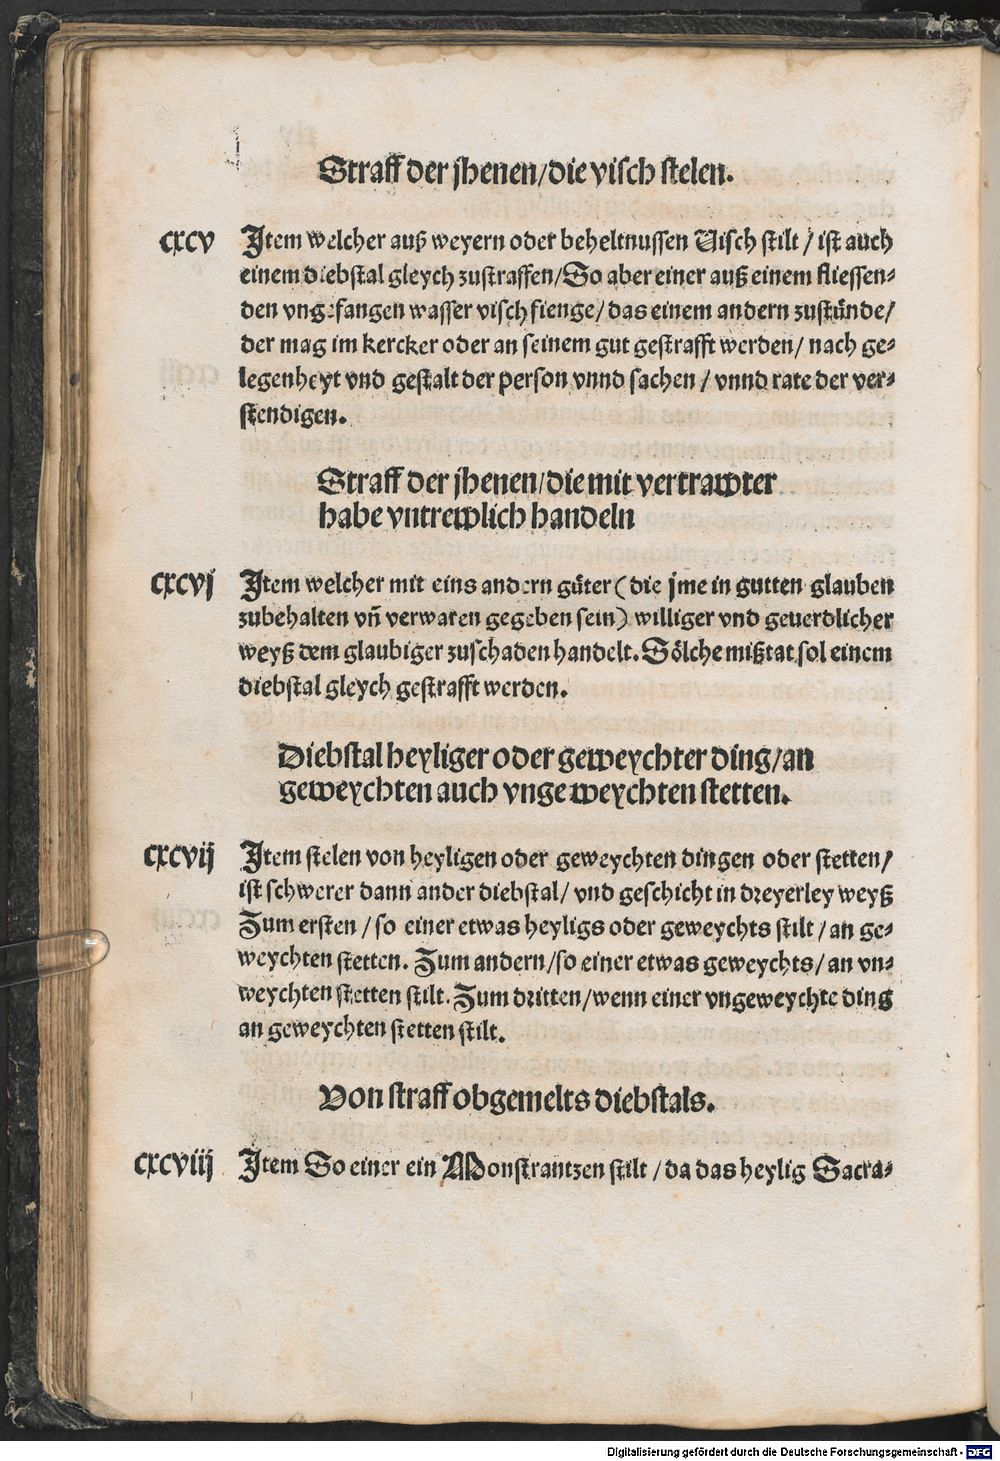 Straff der jhenen/die visch stelen.
cxcv Item welcher auß weyern oder beheltnussen Visch stilt / ist auch
einem diebstal gleych zustraffen/So aber einer auß einem fliessen⸗
den vngefangen wasser visch fienge/das einem andern zustünde/
der mag im kercker oder an seinem gut gestrafft werden/ nach ge⸗
legenheyt vnd gestalt der person vnnd sachen / vnnd rate der ver⸗
stendigen.
Straff der jhenen/die mit vertrawter
habe vntrewlich handeln
cxcvj Item welcher mit eins andern güter ( die jme in gutten glauben
zubehalten vñ verwaren gegeben sein) williger vnd geuerdlicher
weyß dem glaubiger zuschaden handelt. Sölche mißtat sol einem
diebstal gleych gestrafft werden.
Diebstal heyliger oder geweychter ding/an
geweychten auch vngeweychten stetten.
cxcvij Item stelen von heyligen oder geweychten dingen oder stetten/
ist schwerer dann ander diebstal/ vnd geschicht in dreyerley weyß
Zum ersten / so einer etwas heyligs oder geweychts stilt / an ge⸗
weychten stetten. Zum andern/so einer etwas geweychts/ an vn⸗
weychten stetten stilt. Zum dritten/wenn einer vngeweychte ding
an geweychten stetten stilt.
Von straff obgemelts diebstals.
cxcviij Item So einer ein Monstrantzen stilt / da das heylig Sacra⸗
Digitalisierung gefördert durch die Deutsche Forschungsgemeinschaft - DFG